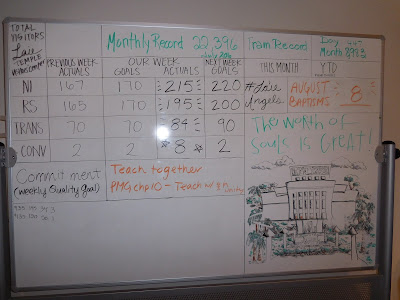 TOTAL VISITORS
Laie
TEMPLE
Monthly Record 22,396
July 2014
Team Record
Day
Month 8983
PREVIOUS WEEK
ACTUALS
OUR WEEK
GOALS
ACTUALS
NEXT WEEK
GOALS
THIS MONTH
YTD
NI 167 170 215 220
RS 165 170 195 200
TRANS 70 70 84 90
CONV 2 2 *8* 2
#Laie
Angels
AUGUST
BAPTISMS
8
The worth of
souls is Great!
Commitment
(Weekly Quality Goal)
Teach together
PMG chp 10 - Teach w/